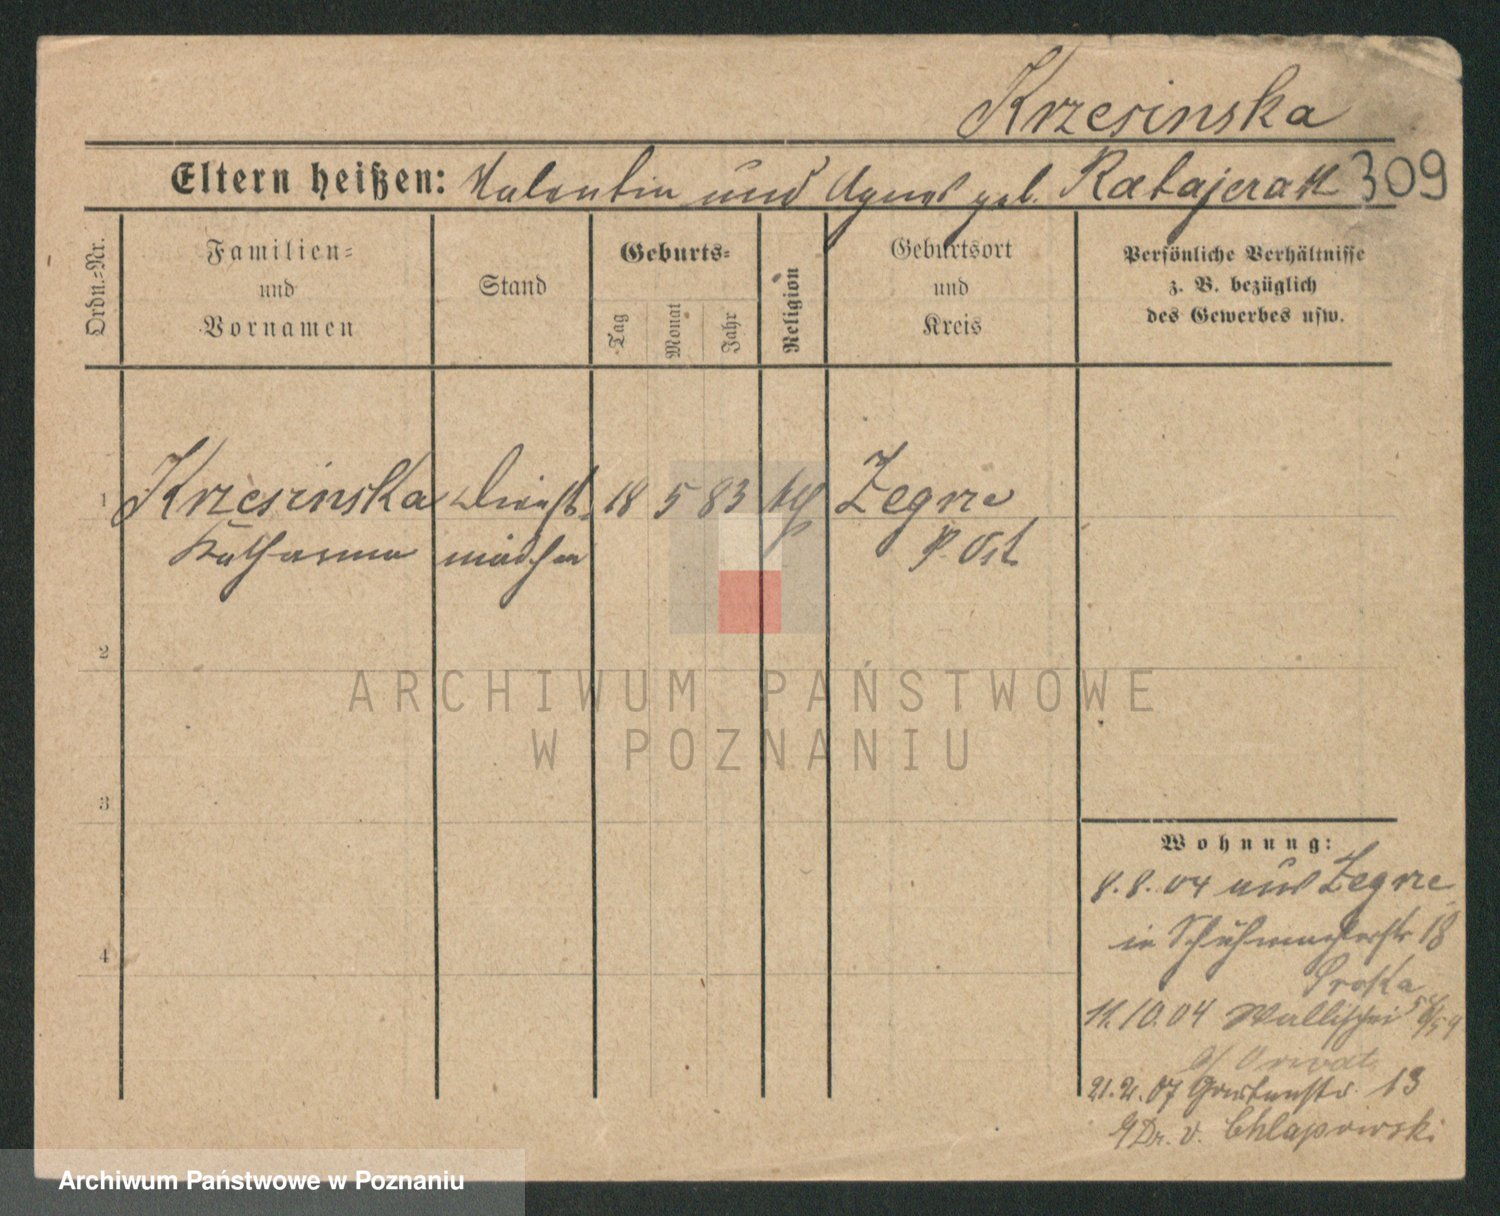 Krzesinska
Eltern heißen: Valentin und Agnes geb. Ratajczak 309
Ordn.-Nr.
Familien-
und
Vornamen
Stand
Geburts-
Tag
Monat
Jahr
Religion
Geburtsort
und
Kreis
Persönliche Verhältnisse
z. B. bezüglich
des Gewerbes usw.
1 Krzesinska Dienst- 18 5 83 kath Zegrze
Katharina mädchen P. Ost
2
ARCHIWUM PAŃSTWOWE
W POZNANIU
3
4
Wohnung:
8.8.04 aus Zegrze
in Schuhmacherstr 18
11.10.04 Wallischei
21.2.07 Gartenstr. 13
Dr. v. Chlapowski
Archiwum Państwowe w Poznaniu